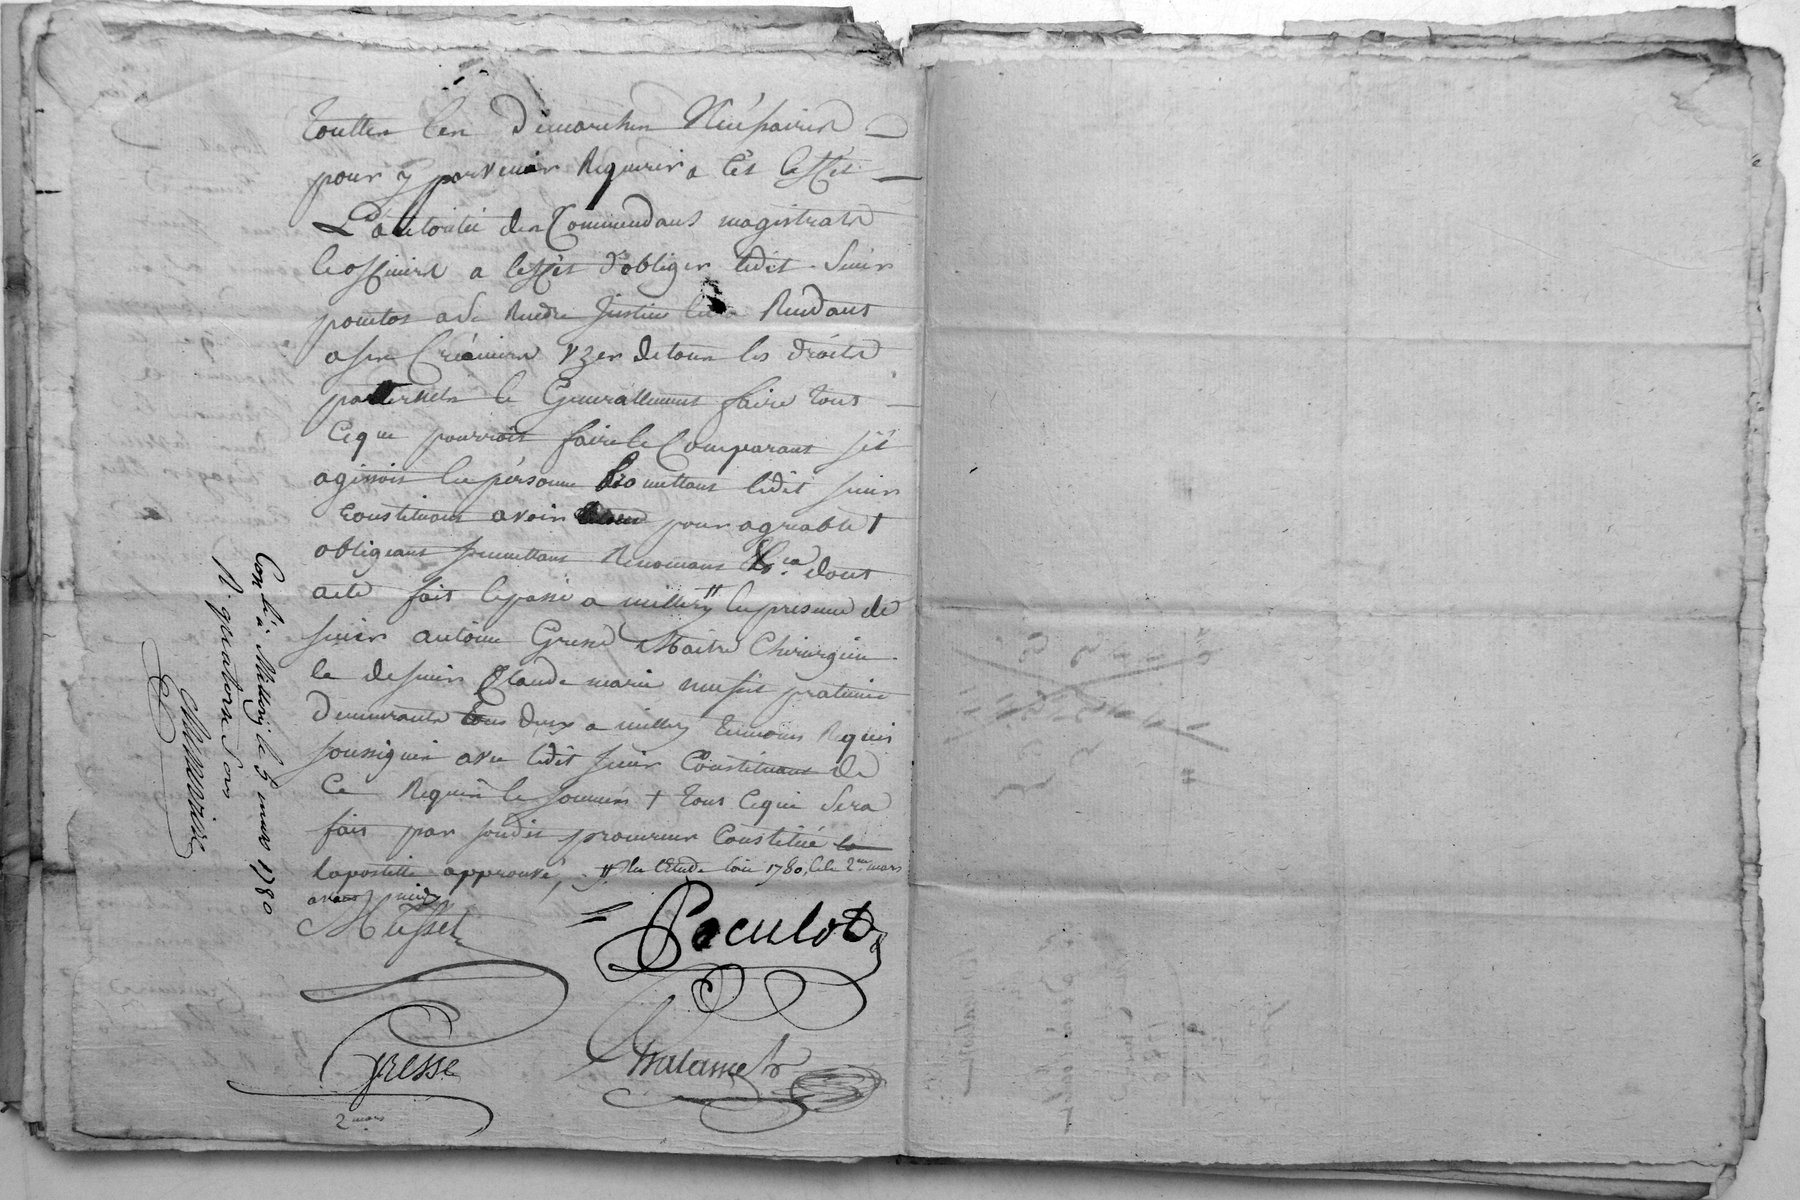 touttes les demarches Nécessaires
pour y parvenir Requerir a cet effét
L'autorité des Commendans magistrats
et officiers a l'effét d'obliger ledit Sieur
a se Rendre Justice en Rendant
a ses Créanciers uzer de tous les droits
paternels et Generallement faire tout
ce que pourroit faire le Comparant s'il
agissoit en personne Promettant ledit sieur
Constituant avoir pour agreable †
obligeant soumettant Renonçant &.ca dont
acte fait et passé a millery # en presence de
sieur antoine Gresse Maitre Chirurgien
et de sieur Claude marie musset praticien
demeurants tous deux a millery temoins Requis
soussignés avec ledit sieur Constituant de
ce Requis et sommés † tout ce qui sera
fait par sondit procureur Constitué
lapostille approuvé, # en l'Etude l'an 1780, et le 2.me mars
avant midy
Musset
Paculot
Gresse
2 mars
Con.lé a Millery le 5 mars 1780
R. quatorze sols